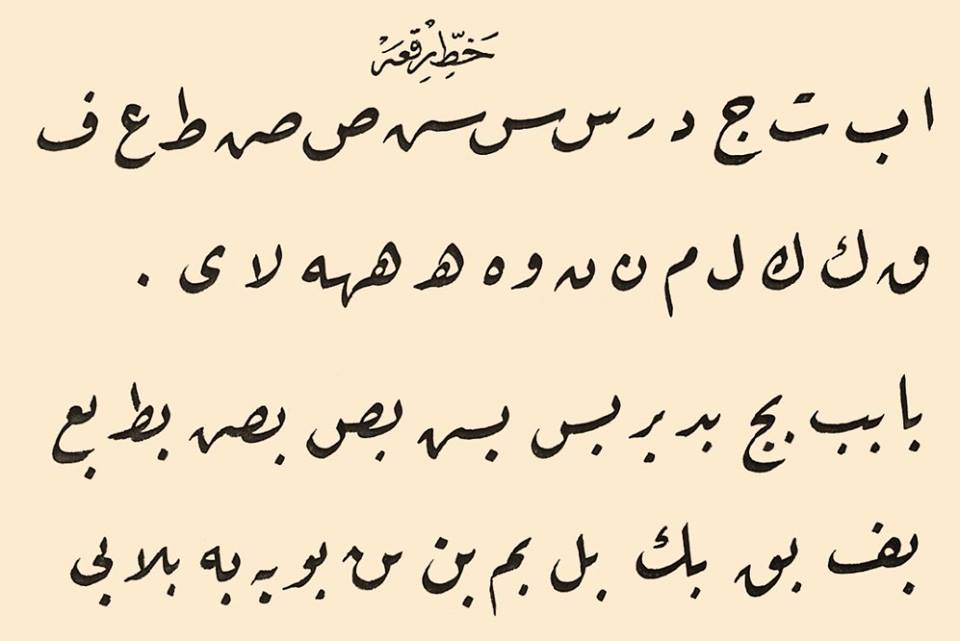 خَطِّ رِقْعَه
ا ب ت ج د ر س س س ص ص ط ع ف
ق ك ك ل م ن ن و ه ه هه لا ى .
با بب بج بد بر بس بس بص بص بط بع
بف بق بك بل بم بن بن بو به به بلا بى